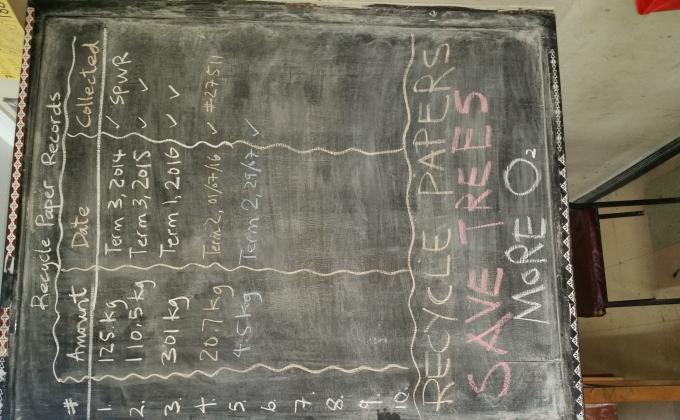 Recycle Paper Records
# Amount Date Collected
1. 125 kg Term 3, 2014 ✓ SPWR
2. 110.5 kg Term 3, 2015 ✓ ✓
3. 301 kg Term 1, 2016 ✓ ✓
4. 207 kg Term 2, 01/07/16 ✓ #27511
5. 45 kg Term 2, 29/ ✓
6.
7.
8.
9.
10.
RECYCLE PAPERS
SAVE TREES
MORE O₂